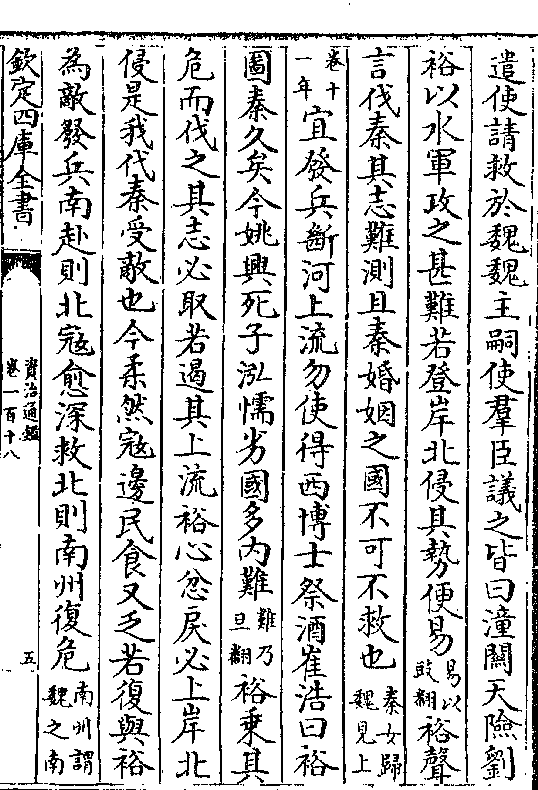 遣使請救於魏魏主嗣使羣臣議之皆曰潼關天險劉
裕以水軍攻之甚難若登岸北侵其勢便易易以豉翻裕聲
言伐秦其志難測且秦婚姻之國不可不救也秦女歸魏見上
卷十一年宜發兵斷河上流勿使得西博士祭酒崔浩曰裕
圖秦久矣今姚興死子泓懦劣國多内難難乃旦翻裕乘其
危而伐之其志必取若遏其上流裕心忿戾必上岸北
侵是我代秦受敵也今柔然寇邊民食又乏若復與裕
為敵發兵南赴則北寇愈深救北則南州復危南州謂魏之南
欽定四庫全書
資治通鑑
卷一百十八
五